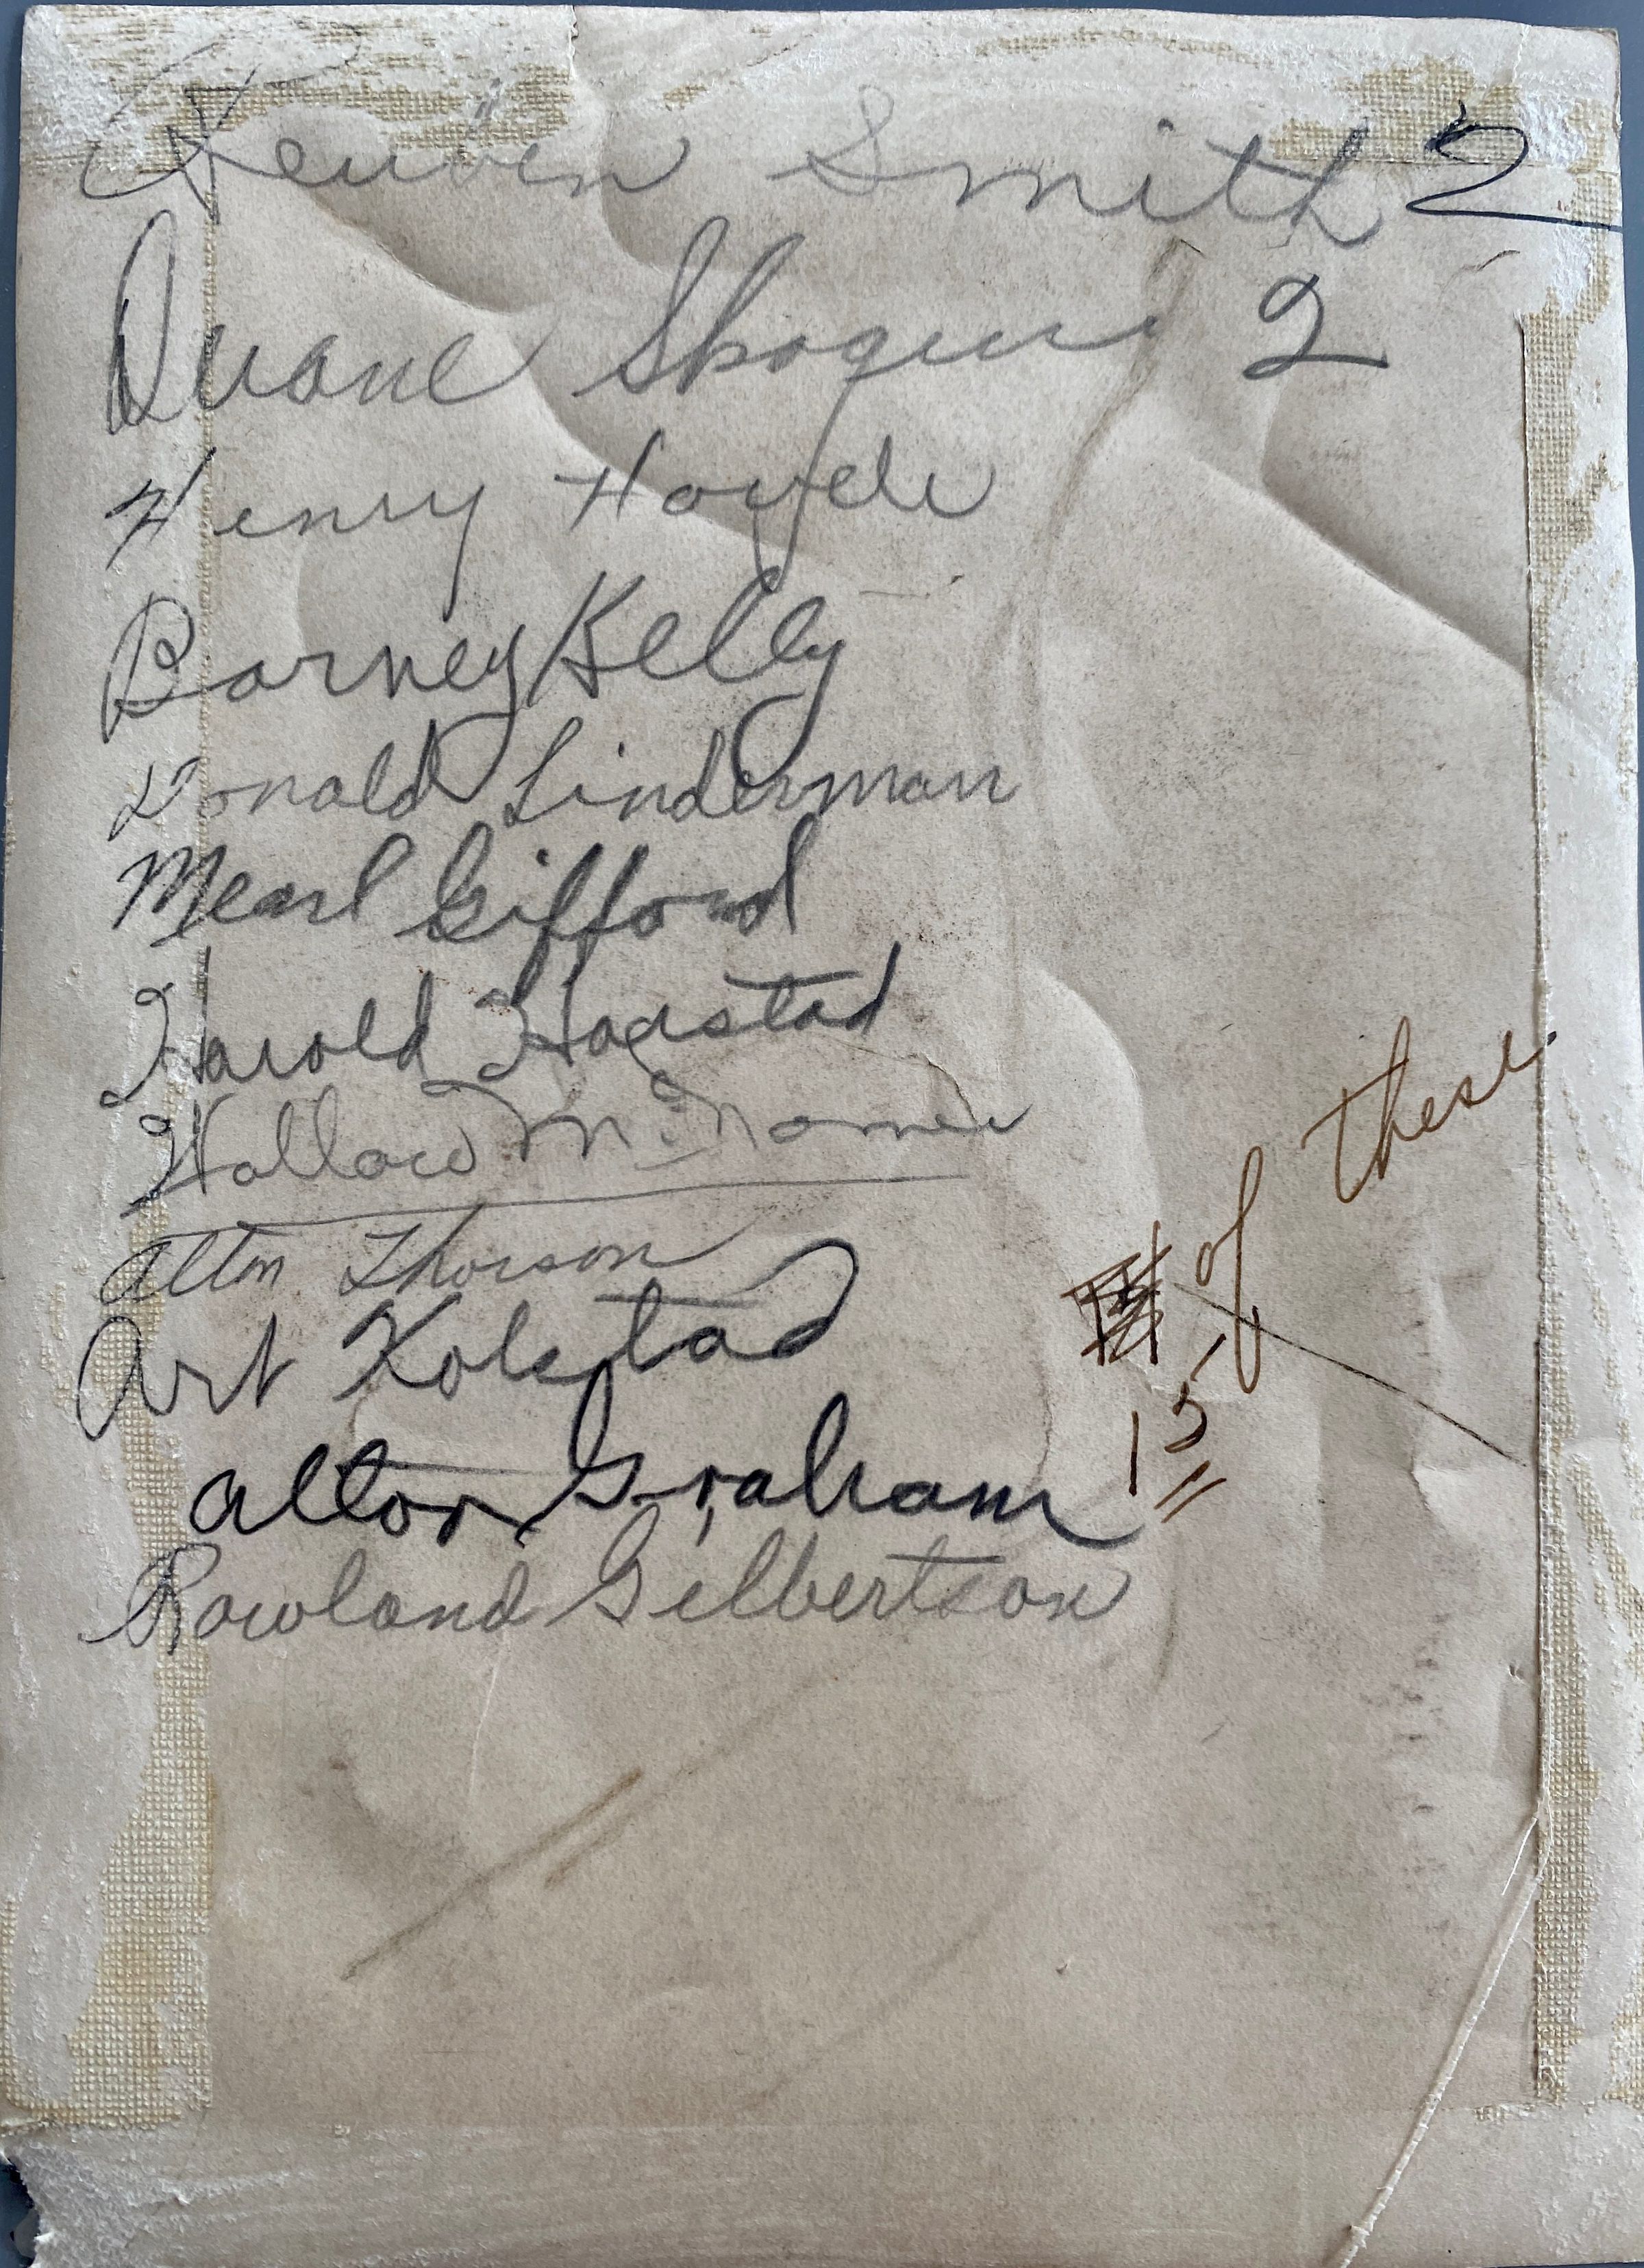 Reuben Smith 2
Duane Skogen 2
Henry Hovde
Barney Kelly
Donald Linderman
Mearl Gifford
Harold Haustad
Wallace McNamee
Alton Thorson
Art Kolstad
Alton Graham
Rowland Gilbertson
of these
15